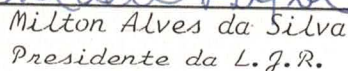 Milton Alves da Silva
Presidente da L.J.R.